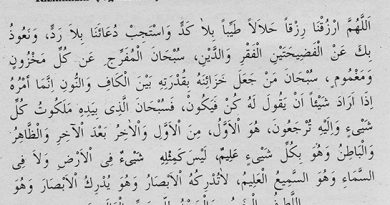 اَللّٰهُمَّ ارْزُقْنَا رِزْقاً حَلاَلاً طَيِّباً بِلاَ كَدٍّ وَاسْتَجِبْ دُعَائَنَا بِلاَ رَدٍّ، وَنَعُوذُ
بِكَ عَنِ الْفَضِيحَتَيْنِ الْفَقْرِ وَالدَّيْنِ، سُبْحَانَ الْمُفَرِّجِ عَنْ كُلِّ مَحْزُونٍ
وَمَغْمُومٍ، سُبْحَانَ مَنْ جَعَلَ خَزَائِنَهُ بِقُدْرَتِهِ بَيْنَ الْكَافِ وَالنُّونِ إِنَّمَا أَمْرُهُ
إِذَا أَرَادَ شَيْئاً أَنْ يَقُولَ لَهُ كُنْ فَيَكُونُ، فَسُبْحَانَ الَّذِى بِيَدِهِ مَلَكُوتُ كُلِّ
شَيْءٍ وَإِلَيْهِ تُرْجَعُونَ، هُوَ الْأَوَّلُ، مِنَ الْأَوَّلِ وَالْأٰخِرُ بَعْدَ الْآخِرِ وَالظَّاهِرُ
وَالْبَاطِنُ وَهُوَ بِكُلِّ شَيْءٍ عَلِيمٌ، لَيْسَ كَمِثْلِهِ شَيْءٌ فِى الْأَرْضِ وَلاَ فِى
السَّمَاءِ وَهُوَ السَّمِيعُ الْعَلِيمُ، لاَتُدْرِكُهُ الْأَبْصَارُ وَهُوَ يُدْرِكُ الْأَبْصَارَ وَهُوَ